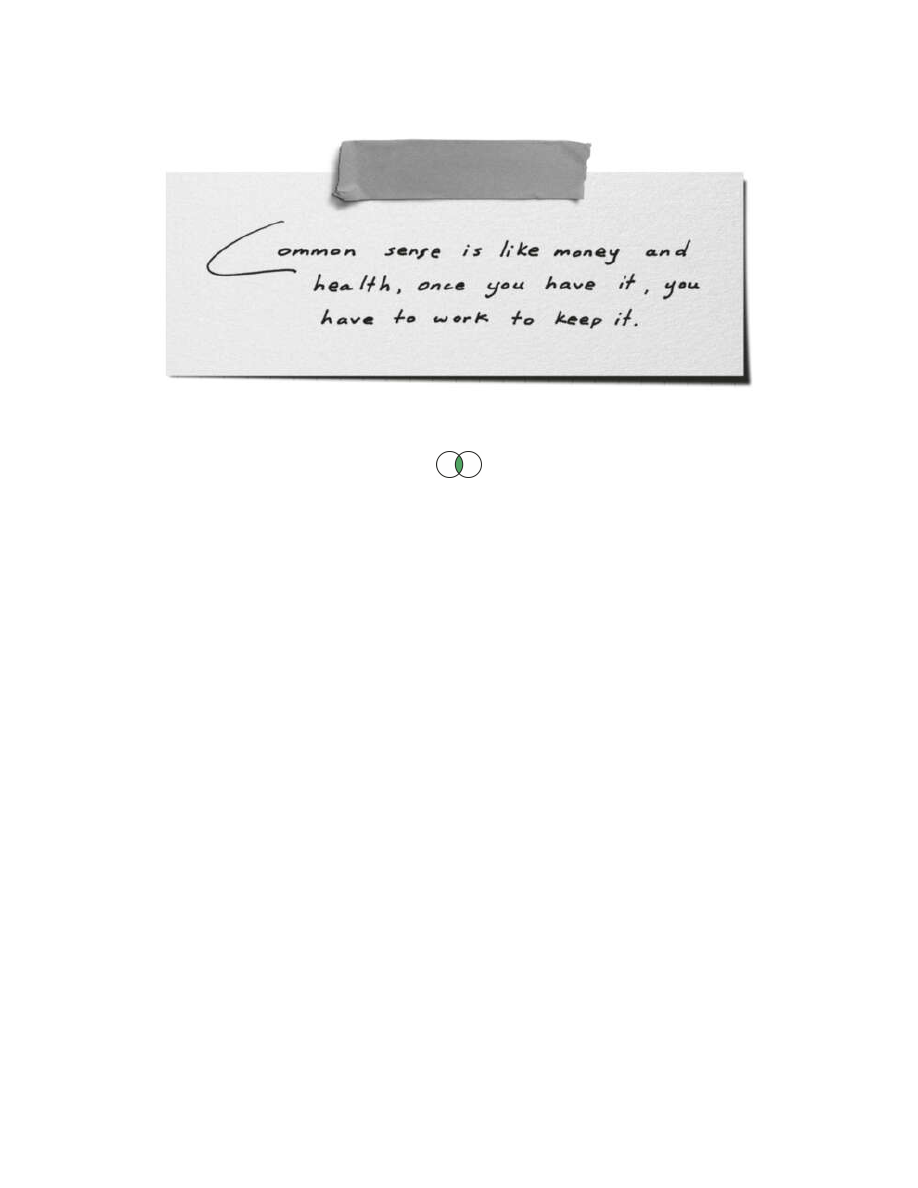 Common sense is like money and
health, once you have it, you
have to work to keep it.